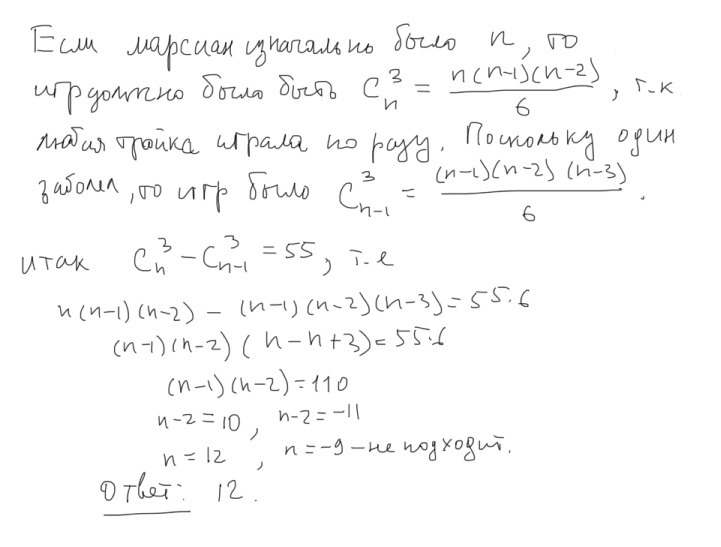 Если марсиан изначально было n, то
игр должно было быть C_n^3 = n(n-1)(n-2)/6, т-к
любая тройка играла по разу. Поскольку один
заболел, то игр было C_{n-1}^3 = (n-1)(n-2)(n-3)/6.
итак C_n^3 - C_{n-1}^3 = 55, т-е
n(n-1)(n-2) - (n-1)(n-2)(n-3) = 55·6
(n-1)(n-2)(n-n+3) = 55·6
(n-1)(n-2) = 110
n-2 = 10, n-2 = -11
n = 12, n = -9 - не подходит.
Ответ: 12.